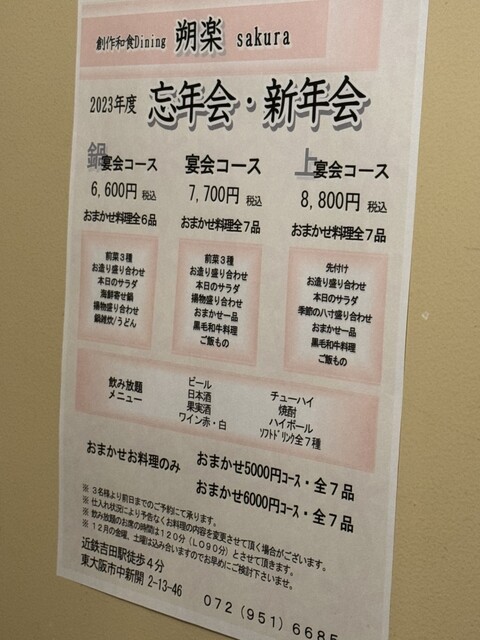 創作和食Dining 朔楽 sakura
2023年度 忘年会・新年会
鍋宴会コース
6,600円 税込
おまかせ料理全6品
前菜3種
お造り盛り合わせ
本日のサラダ
海鮮寄せ鍋
揚物盛り合わせ
鍋雑炊/うどん
宴会コース
7,700円 税込
おまかせ料理全7品
前菜3種
お造り盛り合わせ
本日のサラダ
揚物盛り合わせ
おまかせ一品
黒毛和牛料理
ご飯もの
上宴会コース
8,800円 税込
おまかせ料理全7品
先付け
お造り盛り合わせ
本日のサラダ
季節の八寸盛り合わせ
おまかせ一品
黒毛和牛料理
ご飯もの
飲み放題
メニュー
ビール
日本酒
果実酒
ワイン赤・白
チューハイ
焼酎
ハイボール
ソフトドリンク全7種
おまかせお料理のみ
おまかせ5000円コース・全7品
おまかせ6000円コース・全7品
※3名様より前日までのご予約にて承ります。
※仕入れ状況により予告なくお料理の内容を変更させて頂く場合がございます。
※飲み放題のお席の時間は120分(LO90分)とさせて頂きます。
※12月の金曜、土曜は込み合いますのでお早めにご検討下さいませ。
近鉄吉田駅徒歩4分
東大阪市中新開 2-13-46
072(951)6685